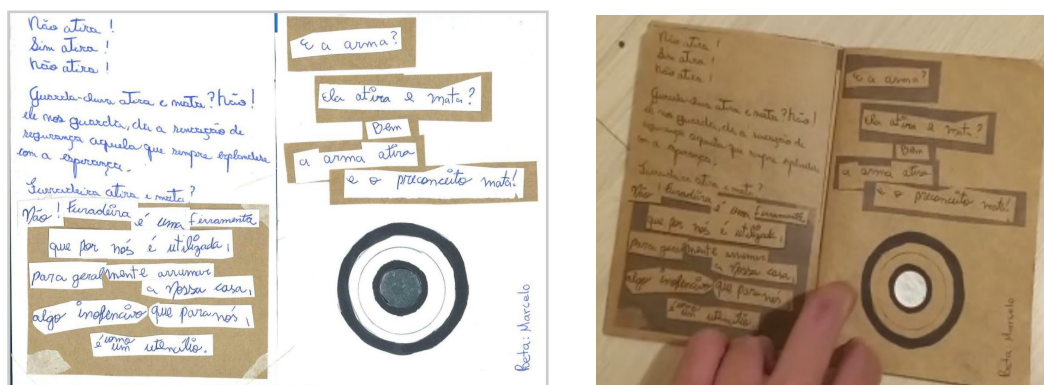 Não atira !
Sim atira !
Não atira !
Guarda-chuva atira e mata? Não!
ele nos guarda, da a sensação de
segurança aquela que sempre esplandece
com a esperança.
Furradeira atira e mata?
Não! Furadeira é uma ferramenta
que por nós é utelizada,
para geralmente arrumar
a nossa casa,
algo inofencivo que para nós,
é como um utencílio.
E a arma?
ela atira e mata?
Bem
a arma atira
e o preconceito mata!
Poeta: Marcelo
Não atira !
Sim atira !
Não atira !
Guarda-chuva atira e mata? Não!
ele nos guarda, da a sensação de
segurança aquela que sempre
com a esperança.
Furradeira atira e mata?
Não! Furadeira é uma ferramenta
que por nós é utelizada,
para geralmente arrumar
a nossa casa,
algo inofencivo que para nós
é como um utencílio
E a arma?
ela atira e mata?
Bem
a arma atira
e o preconceito mata!
Poeta: Marcelo